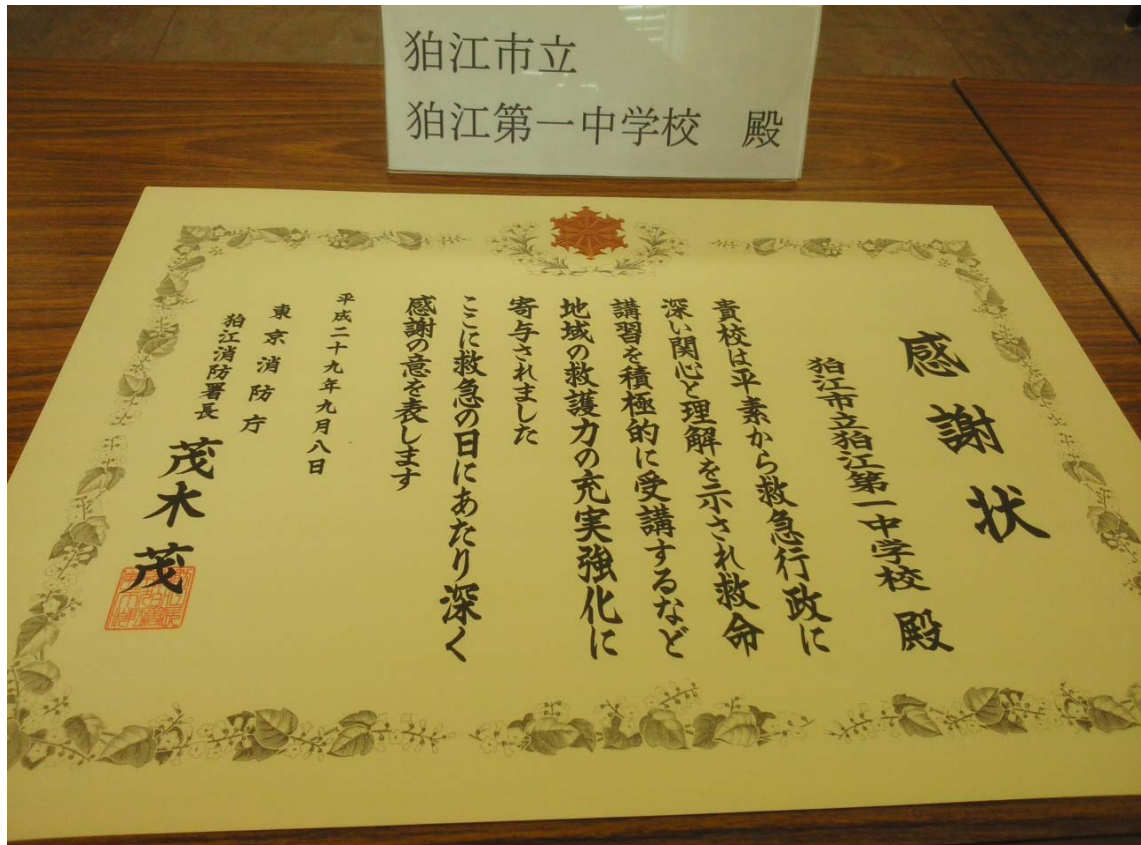 狛江市立
狛江第一中学校 殿
感謝状
狛江市立狛江第一中学校 殿
貴校は平素から救急行政に
深い関心と理解を示され救命
講習を積極的に受講するなど
地域の救護力の充実強化に
寄与されました
ここに救急の日にあたり深く
感謝の意を表します
平成二十九年九月八日
東京消防庁
狛江消防署長 茂木 茂